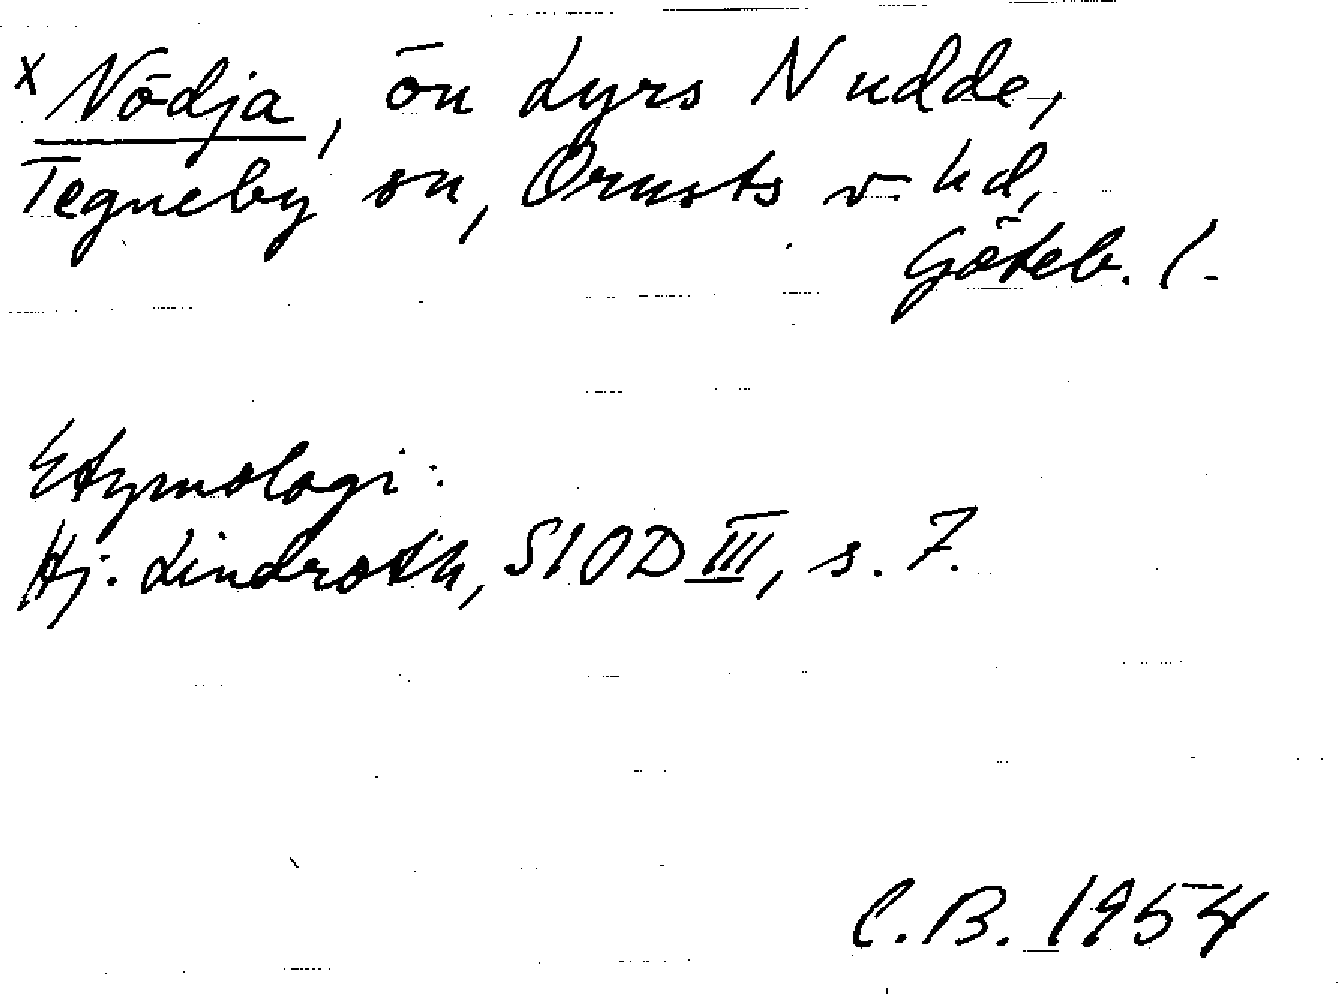 x Nōdja, ön Lyrs Nudde,
Tegneby sn, Orusts v hd,
Göteb. l.
Etymologi:
Hj. Lindroth, SIOD III, s. 7.
C.B. 1954